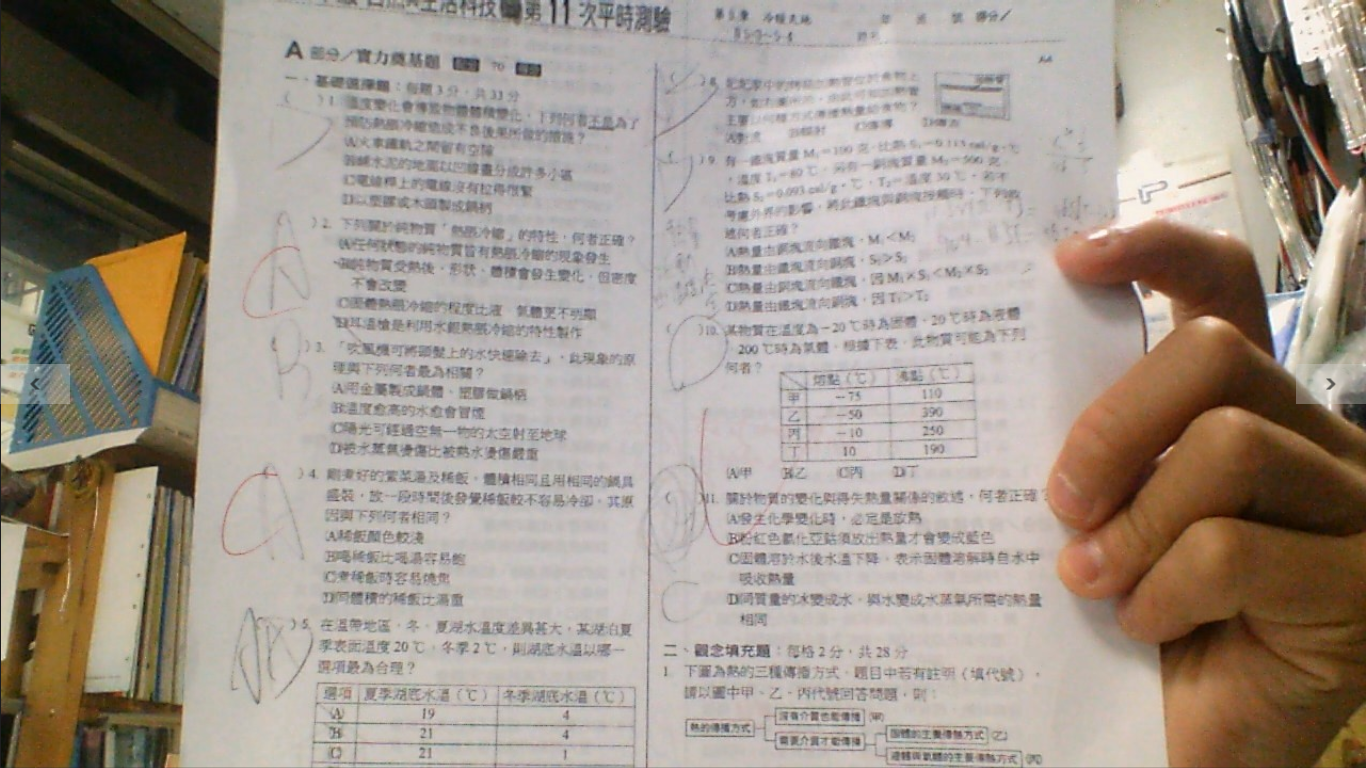 自然與生活科技 第11次平時測驗
第5章 冷暖天地 年 班 號 得分／
A4
A 部分／實力奠基題 70
一、基礎選擇題：每題3分，共33分
( )1. 溫度變化會導致物體體積變化，下列何者不是為了
預防熱脹冷縮造成不良後果所做的措施？
(A)火車鐵軌之間留有空隙
(B)鋪水泥的地面以凹線畫分成許多小區
(C)電線桿上的電線沒有拉得很緊
(D)以塑膠或木頭製成鍋柄
A
( )2. 下列關於純物質「熱脹冷縮」的特性，何者正確？
(A)任何狀態的純物質皆有熱脹冷縮的現象發生
(B)純物質受熱後，形狀、體積會發生變化，但密度
不會改變
(C)固體熱脹冷縮的程度比液、氣體更不明顯
(D)耳溫槍是利用水銀熱脹冷縮的特性製作
B
( )3. 「吹風機可將頭髮上的水快速除去」，此現象的原
理與下列何者最為相關？
(A)用金屬製成鍋體、塑膠做鍋柄
(B)溫度愈高的水愈會冒煙
(C)陽光可經過空無一物的太空射至地球
(D)被水蒸氣燙傷比被熱水燙傷嚴重
A
( )4. 剛煮好的紫菜湯及稀飯，體積相同且用相同的鍋具
盛裝，放一段時間後發覺稀飯較不容易冷卻，其原
因與下列何者相同？
(A)稀飯顏色較淺
(B)喝稀飯比喝湯容易飽
(C)煮稀飯時容易燒焦
(D)同體積的稀飯比湯重
( )5. 在溫帶地區，冬、夏湖水溫度差異甚大，某湖泊夏
季表面溫度20℃，冬季2℃，則湖底水溫以哪一
選項最為合理？
選項 夏季湖底水溫（℃） 冬季湖底水溫（℃）
(A) 19 4
(B) 21 4
(C) 21 1
( )8.
主要以何種方式傳播熱量給食物？
(A)對流 (B)輻射 (C)傳導
( )9. 有一鐵塊質量M₁＝100克，比熱S₁＝0.113 cal/g・℃
，溫度T₁＝80℃，另有一銅塊質量M₂＝500克，
比熱S₂＝0.093 cal/g・℃，T₂＝溫度30℃，若不
考慮外界的影響，將此鐵塊與銅塊接觸時，下列敘
述何者正確？
(A)熱量由銅塊流向鐵塊，M₁＜M₂
(B)熱量由鐵塊流向銅塊，S₁＞S₂
(C)熱量由銅塊流向鐵塊，因M₁×S₁＜M₂×S₂
(D)熱量由鐵塊流向銅塊，因T₁＞T₂
( )10. 某物質在溫度為－20℃時為固體，20℃時為液體
200℃時為氣體，根據下表，此物質可能為下列
何者？
熔點（℃） 沸點（℃）
甲 －75 110
乙 －50 390
丙 －10 250
丁 10 190
(A)甲 (B)乙 (C)丙 (D)丁
( )11. 關於物質的變化與得失熱量關係的敘述，何者正確？
(A)發生化學變化時，必定是放熱
(B)粉紅色氯化亞鈷須放出熱量才會變成藍色
(C)固體溶於水後水溫下降，表示固體溶解時自水中
吸收熱量
(D)同質量的冰變成水，與水變成水蒸氣所需的熱量
相同
C
二、觀念填充題：每格2分，共28分
1. 下圖為熱的三種傳播方式，題目中若有註明（填代號），
請以圖中甲、乙、丙代號回答問題，則：
熱的傳播方式
沒有介質也能傳播 (甲)
需要介質才能傳播
固體的主要傳熱方式 (乙)
液體與氣體的主要傳熱方式 (丙)